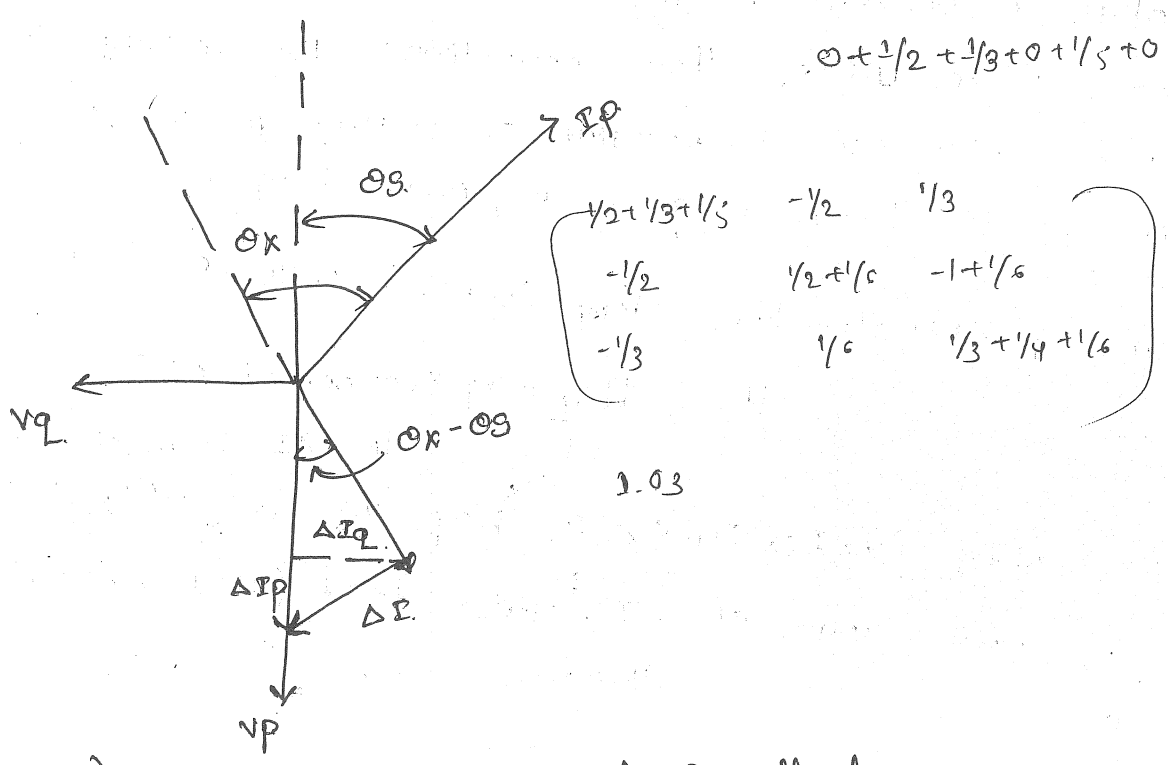 0 + 1/2 + 1/3 + 0 + 1/5 + 0
IP
θs.
1/2+1/3+1/5 -1/2 1/3
θx
-1/2 1/2+1/6 -1+1/6
-1/3 1/6 1/3+1/4+1/6
Vq.
θx-θs
1.03
ΔIq.
ΔIp
ΔI.
Vp